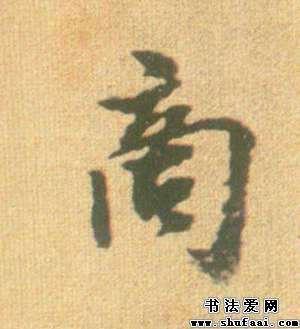 商
书法爱网
www.shufaai.com